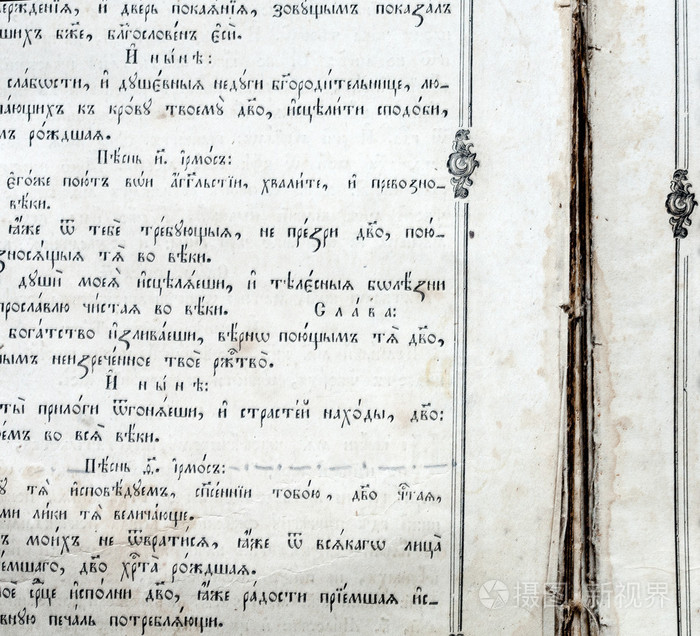 вержденїя, и҆ две́рь покаѧ́нїѧ, зовꙋ́щымъ показа́лъ
шихъ бж҃е, блгⷭ҇ове́нъ є҆сѝ.
И҆ ны́нѣ:
сла́бѡсти, и҆ дꙋшє́вныѧ недꙋ́ги бг҃ороди́тельнице, лю-
па́ющихъ къ кро́вꙋ твоемꙋ̀ дв҃о, и҆сцѣли́ти сподо́би,
мъ ро́ждшаѧ.
Пѣ́снь и҃. і҆рмо́съ:
є҆го́же пою́тъ во́и а҆́гг҃льстїи, хвали́те, и҆ превозно-
вѣ́ки.
ꙗ҆̀же ѿ тебє̀ тре́бꙋющыѧ, не пре́зри дв҃о, пою́-
зносѧ́щыѧ тѧ̀ во вѣ́ки.
дꙋшѝ моеѧ̀ и҆сцѣлѧ́еши, и҆ тѣлє́сныѧ болѣ̑зни
просла́влю чи́стаѧ во вѣ́ки. Сла́ва:
бога́тство и҆злива́еши, вѣ́рнѡ пою́щымъ тѧ̀ дв҃о,
нымъ неизрече́нное твоѐ ржⷭ҇тво̀.
И҆ ны́нѣ:
ты̀ прило́ги ѿгонѧ́еши, и҆ страсте́й нахо́ды, дв҃о:
е́мъ во всѧ̑ вѣ́ки.
Пѣ́снь ѳ҃. і҆рмо́съ:
ꙋ тѧ̀ и҆сповѣ́дꙋемъ, спⷭ҇е́ннїи тобо́ю, дв҃о чⷭ҇таѧ,
ми ли́ки тѧ̀ велича́юще.
ъ мои́хъ не ѿврати́сѧ, ꙗ҆́же ѿ всѧ́кагѡ лица̀
е́мшаго, дв҃о хрⷭ҇та̀ ро́ждшаѧ.
ое срⷣце и҆спо́лни дв҃о, ꙗ҆́же ра́дости прїе́мшаѧ и҆с-
вную печа́ль потреблѧ́ющи.
摄图 新视界